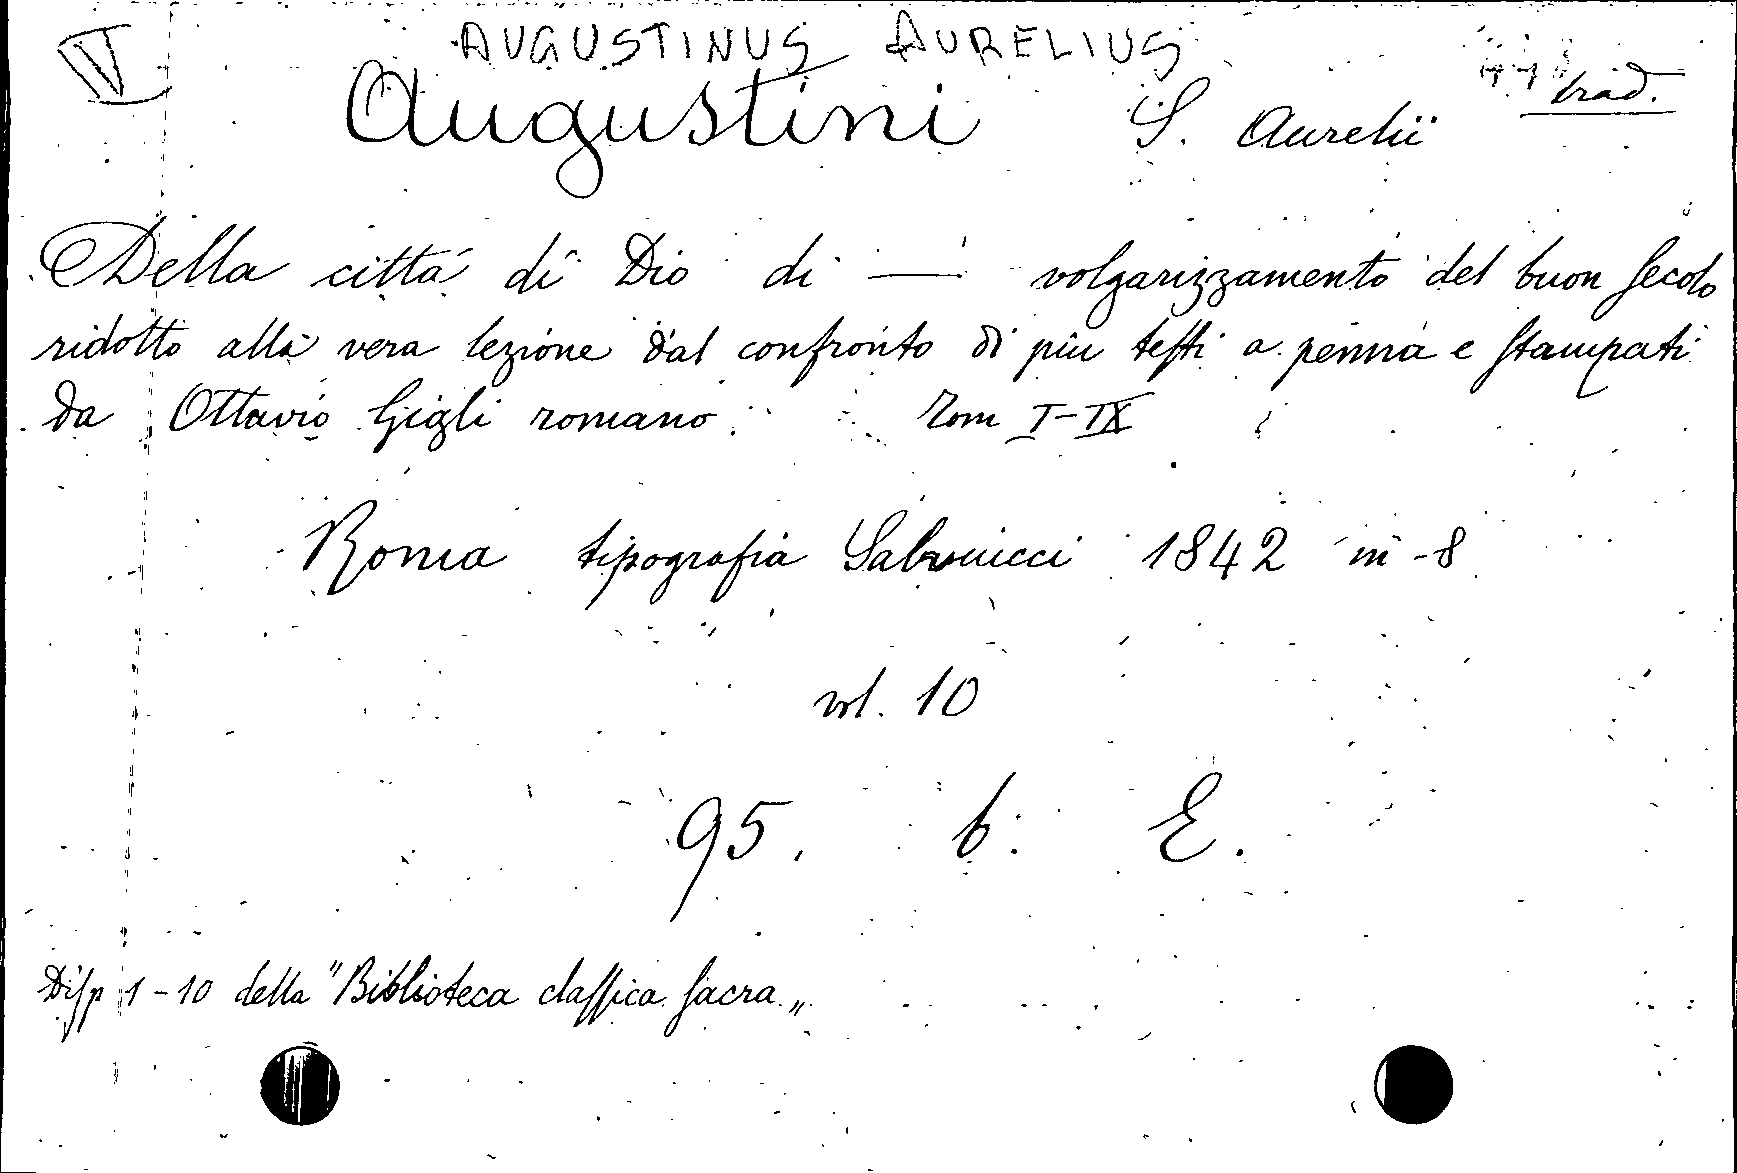 AUGUSTINUS AURELIUS
V trad.
Augustini S. Aurelii
Della cittá di Dio di — volgarizzamento del buon secolo
ridotto alla vera lezione dal confronto di piu testi a penna e stampati
da Ottavio Gigli romano. Tom I-IX
Roma tipografia Salviucci 1842 in -8
vol. 10
95. b. E.
Disp 1-10 della "Biblioteca classica sacra„